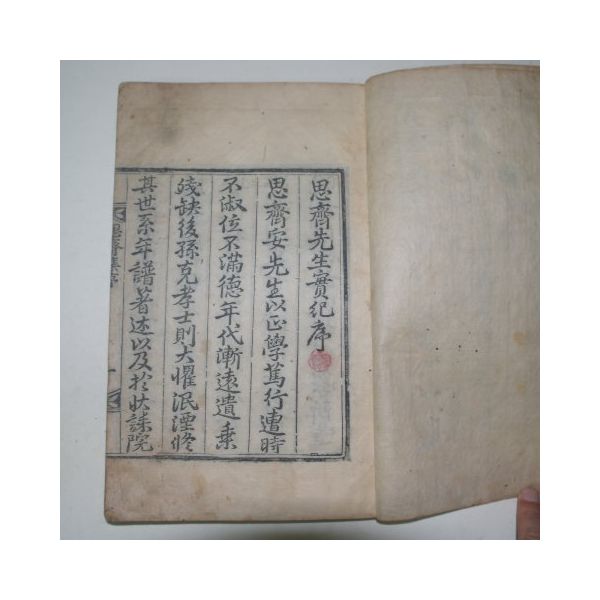 思齋先生實紀序
思齋安先生以正學篤行遭時
不淑位不滿德年代漸遠遺乘
殘缺後孫克孝士則大懼泯湮修
其世系年譜著述以及於狀誄院